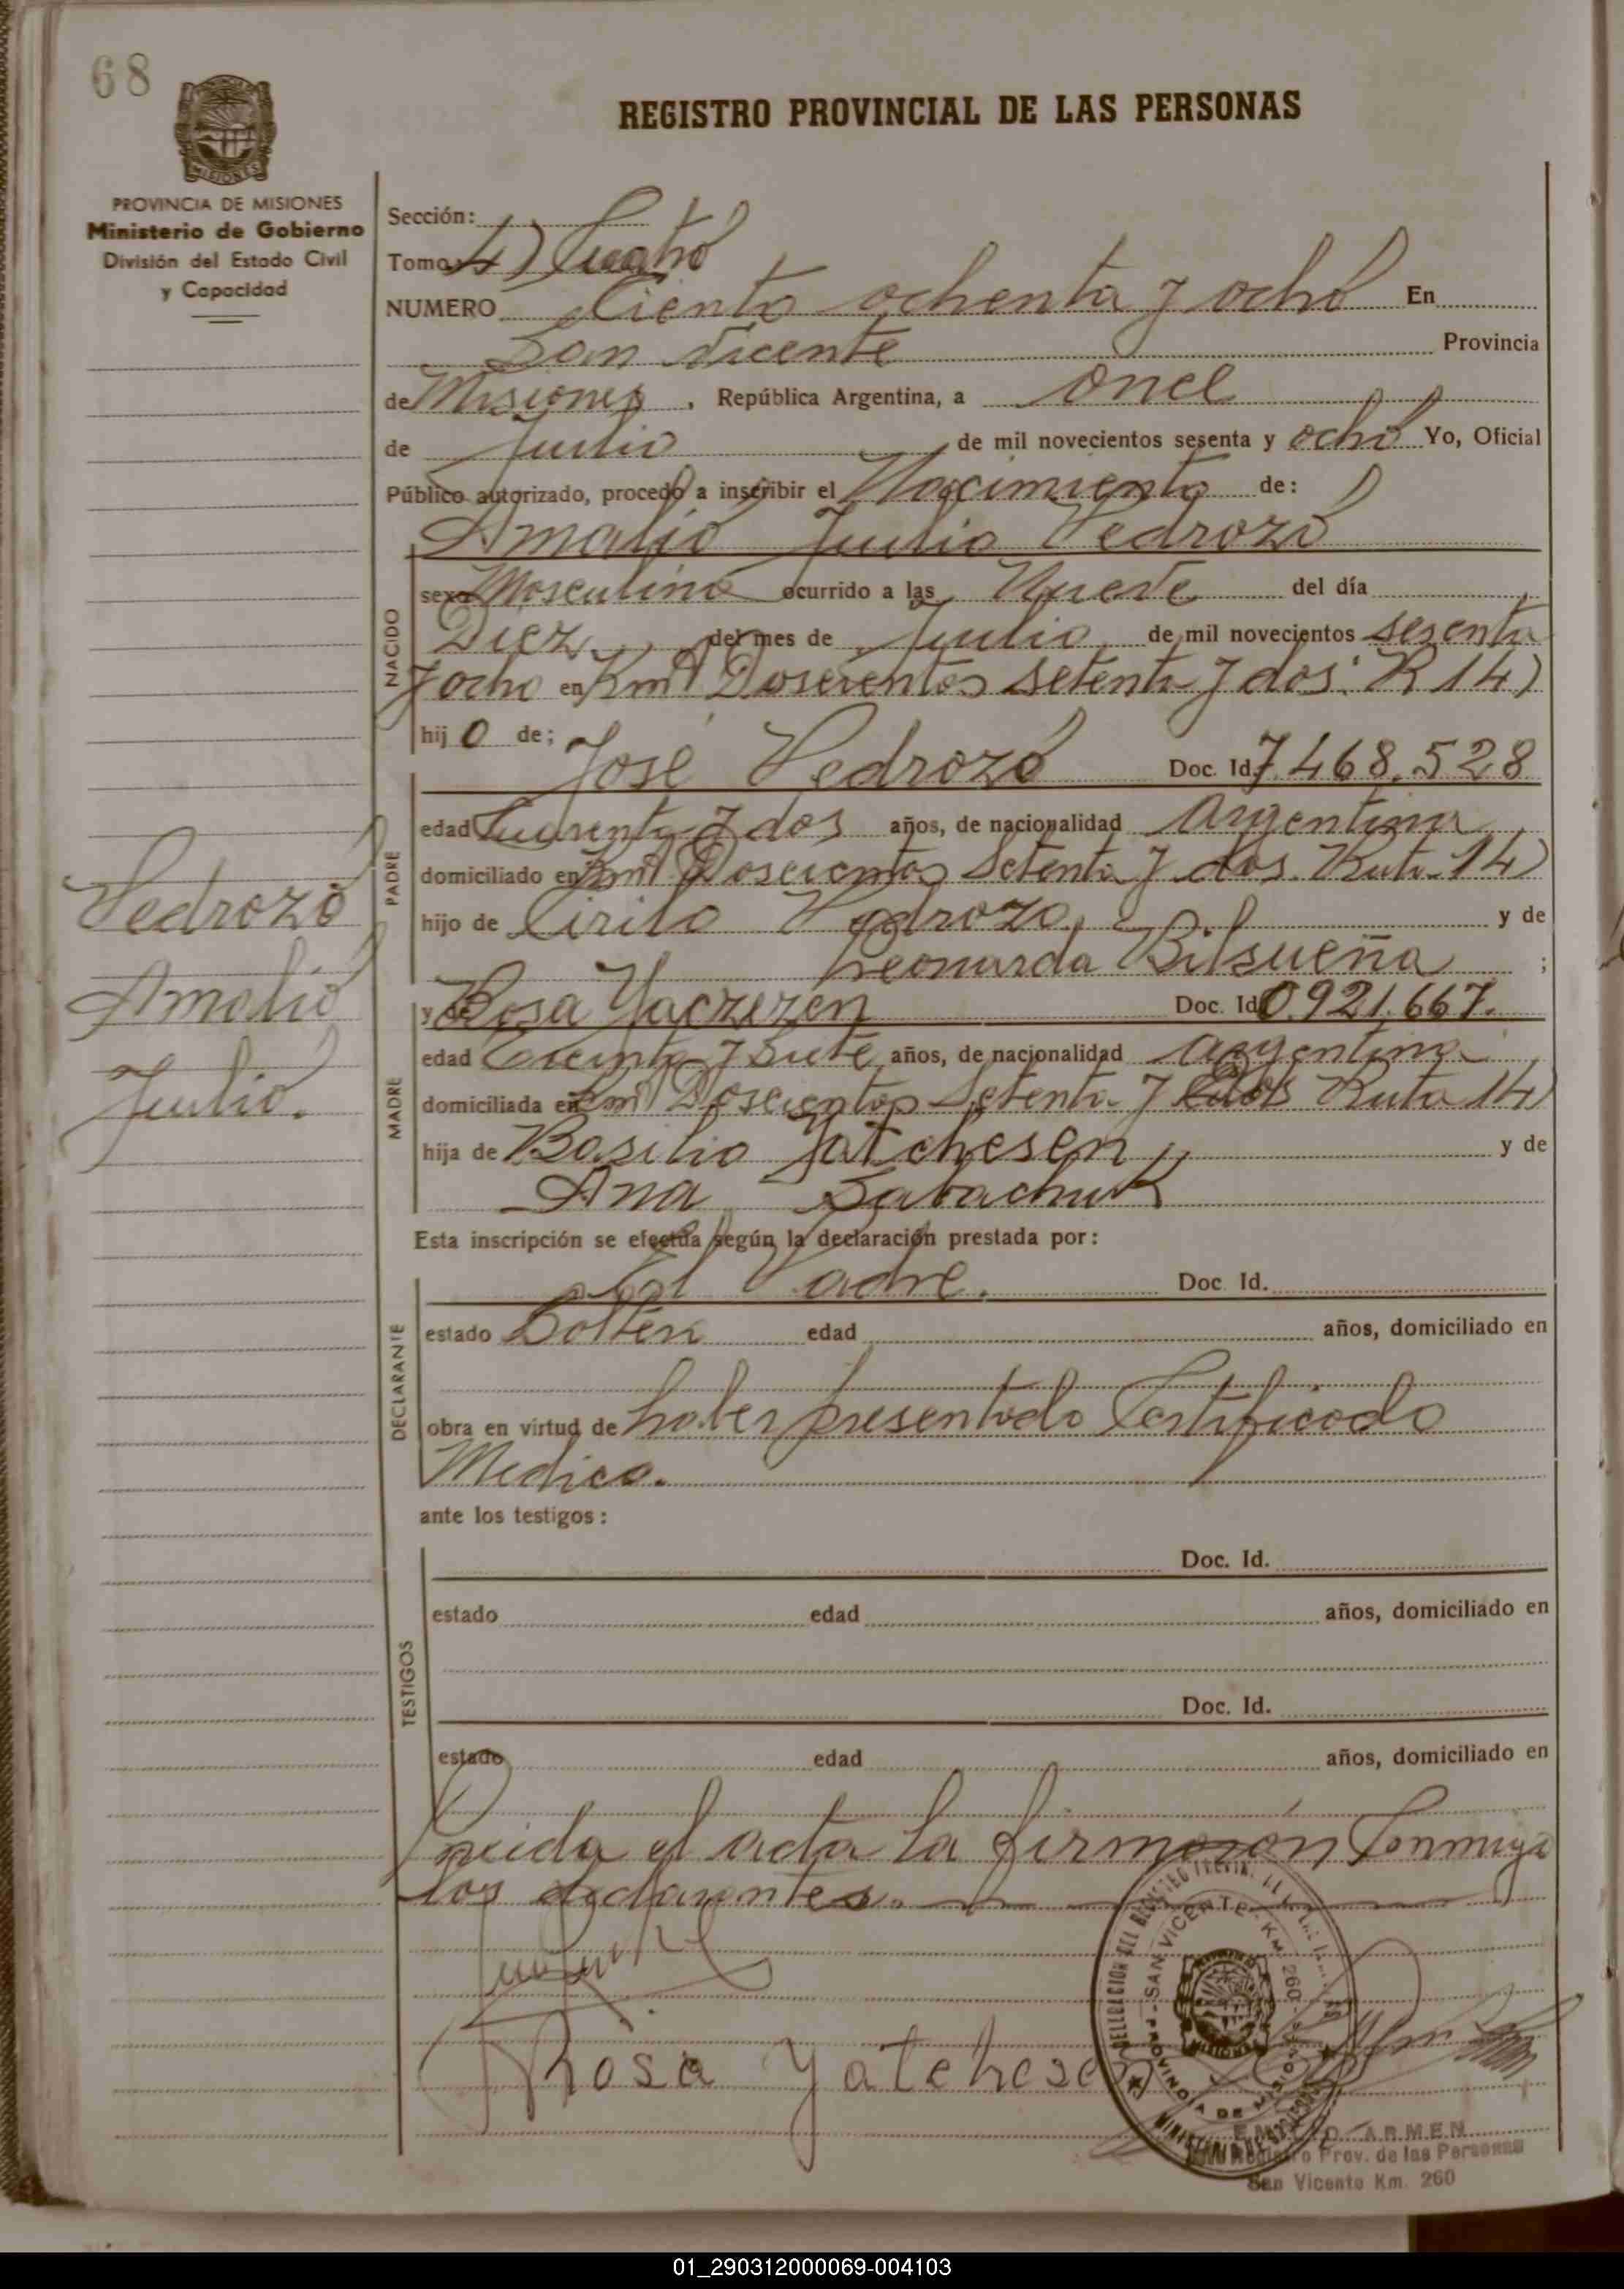 68
REGISTRO PROVINCIAL DE LAS PERSONAS
MISIONES
PROVINCIA DE MISIONES
Ministerio de Gobierno
División del Estado Civil
y Capacidad
Sección:
Tomo 4) Cuatro
NUMERO Ciento ochenta y ocho En
San Vicente Provincia
de Misiones, República Argentina, a once
de Julio de mil novecientos sesenta y ocho Yo, Oficial
Público autorizado, procedo a inscribir el Nacimiento de:
Amalio Julio Pedrozo
NACIDO
sexo Masculino ocurrido a las Nueve del día
Diez del mes de Julio de mil novecientos sesenta
y ocho en Km Doscientos setenta y dos R 14)
hij o de;
PADRE
José Pedrozo Doc. Id. 7.468.528
edad Cuarenta y dos años, de nacionalidad Argentina
domiciliado en Km Doscientos Setenta y dos Ruta 14)
hijo de Cirilo Pedrozo y de
Leonarda Bilsueña ;
MADRE
y de Rosa Yaczezen Doc. Id. 0.921.667.
edad Treinta y Siete años, de nacionalidad Argentina
domiciliada en Km Doscientos Setenta y Dos Ruta 14)
hija de Basilio Yatchesen y de
Ana Sabachuk
Pedrozo
Amalio
Julio.
Esta inscripción se efectúa según la declaración prestada por:
DECLARANTE
El Padre. Doc Id.
estado Solten edad años, domiciliado en
obra en virtud de haber presentado Certificado
Medico.
ante los testigos:
TESTIGOS
Doc. Id.
estado edad años, domiciliado en
Doc. Id.
estado edad años, domiciliado en
Leida el acta la firmarón Conmigo
los declarantes.
Rosa Yatchesen
SAN VICENTE - KM 260 -
PROVINCIA DE MISIONES
MISIONES
ARMEN
Registro Prov. de las Personas
San Vicente Km. 260
01_290312000069-004103